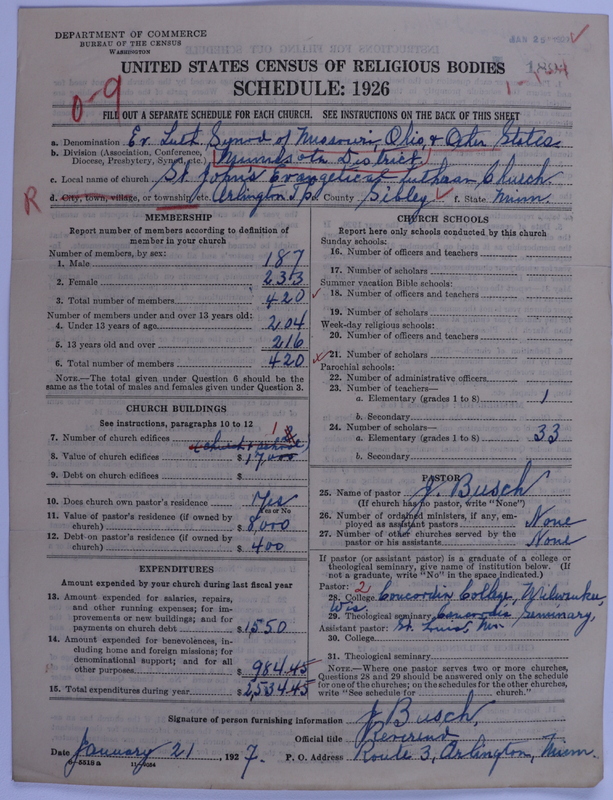 DEPARTMENT OF COMMERCE
BUREAU OF THE CENSUS
WASHINGTON
UNITED STATES CENSUS OF RELIGIOUS BODIES
SCHEDULE: 1926
0-9
FILL OUT A SEPARATE SCHEDULE FOR EACH CHURCH. SEE INSTRUCTIONS ON THE BACK OF THIS SHEET
a. Denomination Ev. Luth. Synod of Missouri, Ohio, & Other States
b. Division (Association, Conference, Diocese, Presbytery, Synod, etc.) Minnesota District
c. Local name of church St. John's Evangelical Lutheran Church
R d. City, town, village, or township, etc. Arlington Tp. County Sibley f. State Minn.
MEMBERSHIP
Report number of members according to definition of
member in your church
Number of members, by sex:
1. Male 187
2. Female 233
3. Total number of members 420
Number of members under and over 13 years old:
4. Under 13 years of age 204
5. 13 years old and over 216
6. Total number of members 420
NOTE.—The total given under Question 6 should be the
same as the total of males and females given under Question 3.
CHURCH BUILDINGS
See instructions, paragraphs 10 to 12
7. Number of church edifices 1 2
(church & school)
8. Value of church edifices $17,000
9. Debt on church edifices $
10. Does church own pastor's residence Yes
Yes or No
11. Value of pastor's residence (if owned by
church) $8,000
12. Debt on pastor's residence (if owned by
church) $400
EXPENDITURES
Amount expended by your church during last fiscal year
13. Amount expended for salaries, repairs,
and other running expenses; for im-
provements or new building; and for
payments on church debt $1550
14. Amount expended for benevolences, in-
cluding home and foreign missions; for
denominational support; and for all
other purposes $984.45
15. Total expenditures during year $2,534.45
CHURCH SCHOOLS
Report here only schools conducted by this church
Sunday schools:
16. Number of officers and teachers
17. Number of scholars
Summer vacation Bible schools:
18. Number of officers and teachers
19. Number of scholars
Week-day religious schools:
20. Number of officers and teachers
21. Number of scholars
Parochial schools:
22. Number of administrative officers
23. Number of teachers—
a. Elementary (grades 1 to 8) 1
b. Secondary
24. Number of scholars—
a. Elementary (grades 1 to 8) 33
b. Secondary
PASTOR
25. Name of pastor J. Busch
(If church has no pastor, write "None")
26. Number of ordained ministers, if any, em-
ployed as assistant pastors None
27. Number of other churches served by the
pastor or his assistants None
If pastor (or assistant pastor) is a graduate of a college or
theological seminary, give name of institution below. (If
not a graduate, write "No" in the space indicated.)
Pastor: 2
28. College Concordia College, Milwaukee,
Wis.
29. Theological seminary Concordia Seminary,
Assistant pastor: St. Louis, Mo.
30. College
31. Theological seminary
NOTE.—Where one pastor serves two or more churches,
Questions 28 and 29 should be answered only on the schedule
for one of the churches; on the schedules for the other churches,
write "See schedule for church."
Signature of person furnishing information J. Busch,
Official title Reverend
Date January 21, 1927. P. O. Address Route 3, Arlington, Minn.